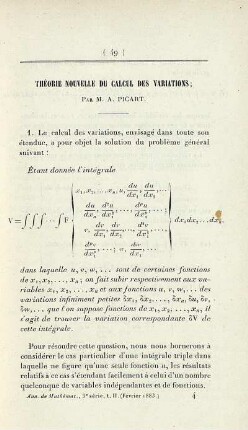 ( 49 )
THÉORIE NOUVELLE DU CALCUL DES VARIATIONS;
PAR M. A. PICART.
1. Le calcul des variations, envisagé dans toute son
étendue, a pour objet la solution du problème général
suivant :
Étant donnée l'intégrale
V = ∫∫∫ ··· ∫ F
x₁, x₂, ..., xₙ, u, du/dx₁, du/dx₂, ...
dx₁ dx₂ ... dxₙ
dans laquelle u, v, w, ... sont de certaines fonctions
de x₁, x₂, ..., xₙ; on fait subir respectivement aux va-
riables x₁, x₂, ..., xₙ et aux fonctions u, v, w, ... des
variations infiniment petites δx₁, δx₂, ..., δxₙ, δu, δv,
δw, ... que l'on suppose fonctions de x₁, x₂, ..., xₙ; il
s'agit de trouver la variation correspondante δV de
cette intégrale.
Pour résoudre cette question, nous nous bornerons à
considérer le cas particulier d'une intégrale triple dans
laquelle ne figure qu'une seule fonction u, les résultats
relatifs à ce cas s'étendant facilement à celui d'un nombre
quelconque de variables indépendantes et de fonctions.
Ann. de Mathémat., 3e série, t. II. (Février 1883.) 4